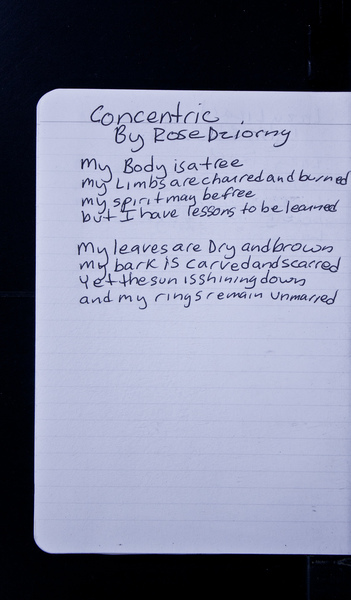 Concentric
By Rose Dziorny
My Body is a tree
my Limbs are charred and burned
my spirit may be free
but I have lessons to be learned
My leaves are Dry and brown
my bark is carved and scarred
Yet the sun is shining down
and my rings remain unmarred